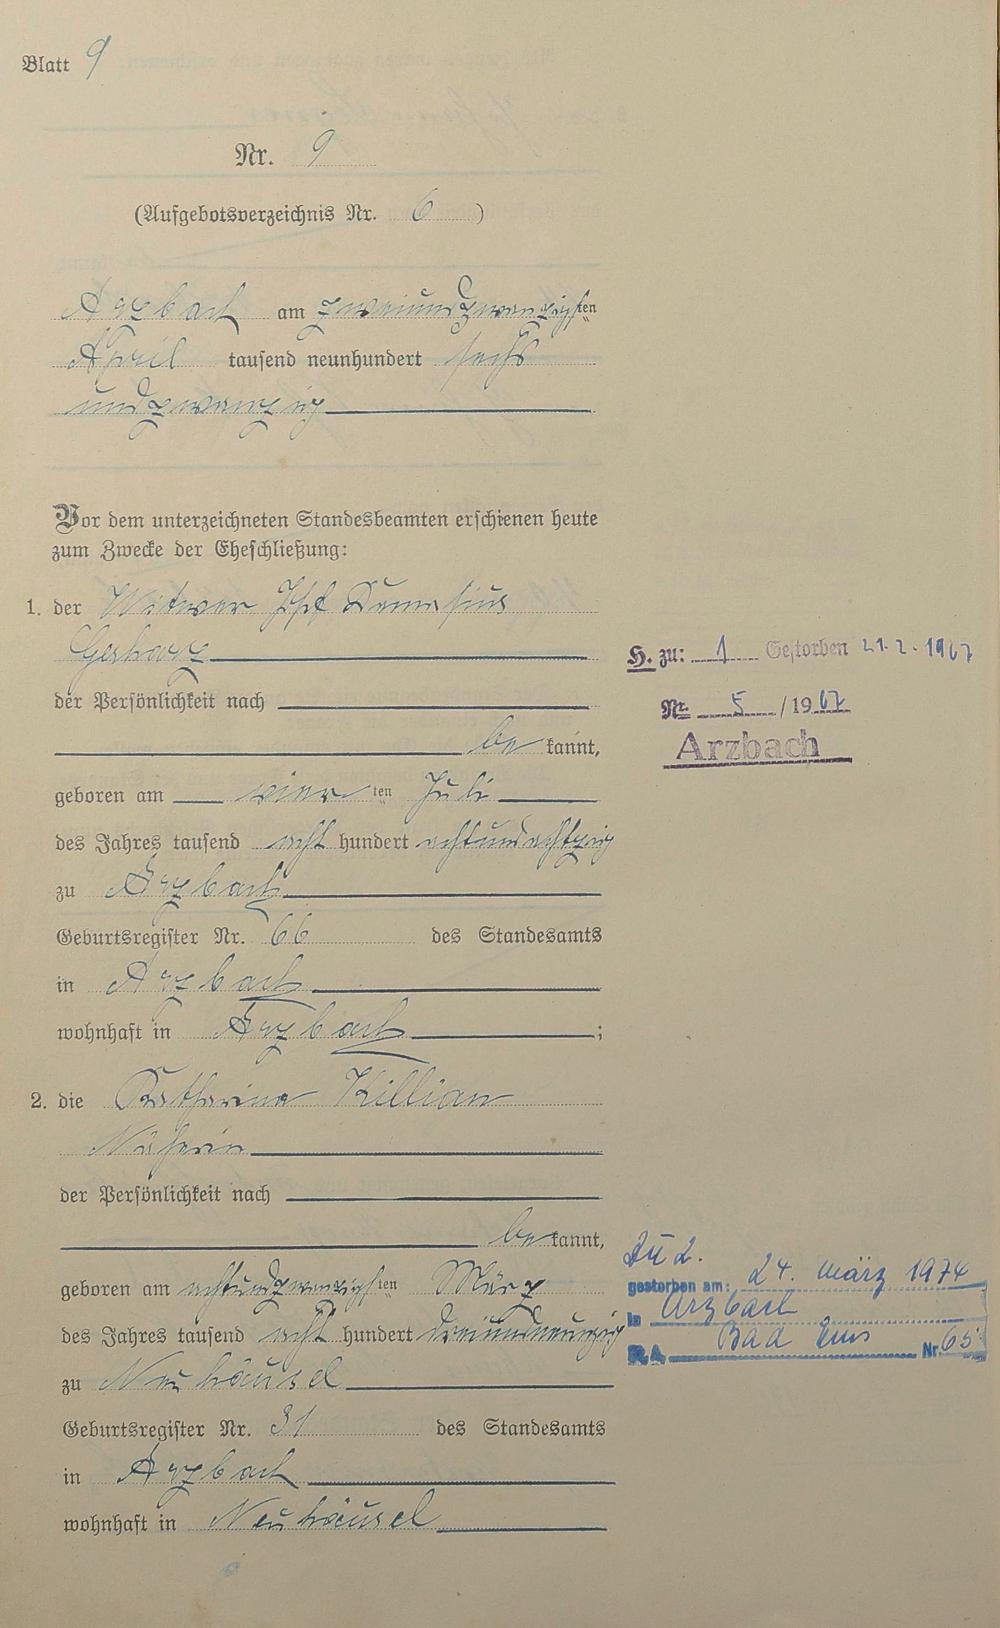 Blatt 9
Nr. 9
(Aufgebotsverzeichnis Nr. 6 )
Arzbach am zweiundzwanzigsten
April tausend neunhundert sechs
undzwanzig
Vor dem unterzeichneten Standesbeamten erschienen heute
zum Zwecke der Eheschließung:
1. der Witwer Josef Damasius
Gerharz
der Persönlichkeit nach
be kannt,
geboren am vier ten Juli
des Jahres tausend acht hundert achtundachtzig
zu Arzbach
Geburtsregister Nr. 66 des Standesamts
in Arzbach
wohnhaft in Arzbach ;
H. zu: 1 Gestorben 21.2.1967
Nr. 5 / 1967
Arzbach
2. die Katharina Killian
Näherin
der Persönlichkeit nach
be kannt,
geboren am achtundzwanzigsten März
des Jahres tausend acht hundert dreiundneunzig
zu Neuhäusel
Geburtsregister Nr. 31 des Standesamts
in Arzbach
wohnhaft in Neuhäusel
Zu 2.
gestorben am: 24. März 1974
in Arzbach
RA Bad Ems Nr. 65